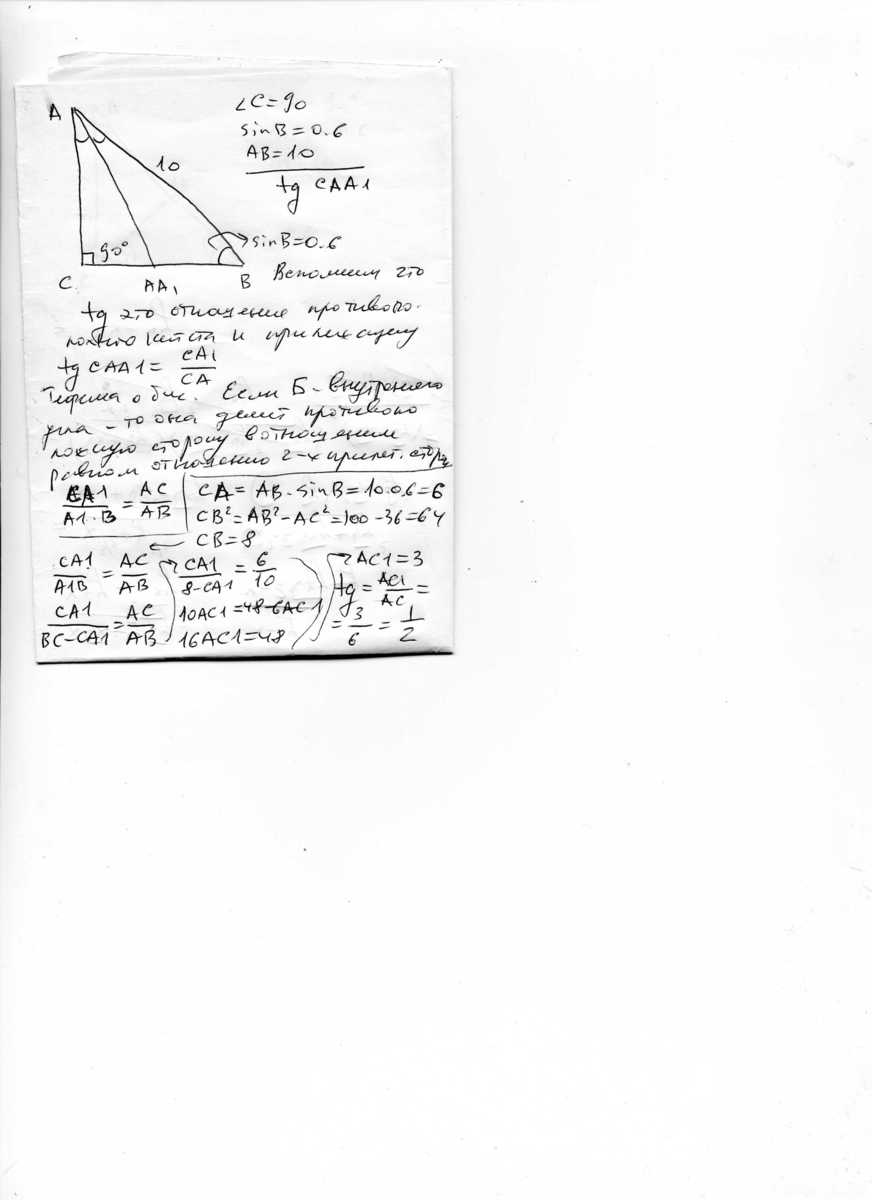 A
∠C=90
sinB=0.6
AB=10
tg CAA1
10
90°
sinB=0.6
C
AA1
B
Вспомним что
tg это отношение противопо-
ложно катета и прилежащему
tg CAA1 = CA1/CA
Теорема о бис. Если Б-внутреннего
угла - то она делит противопо
ложную сторону в отношении
равном отношению 2-х прилеж. сторон
CA1/A1·B = AC/AB
CA = AB·sinB = 10·0.6=6
CB²=AB²-AC²=100-36=64
CB=8
CA1/A1B = AC/AB
CA1/BC-CA1 = AC/AB
CA1/8-CA1 = 6/10
10AC1=48-6AC1
16AC1=48
AC1=3
tg = AC1/AC =
= 3/6 = 1/2